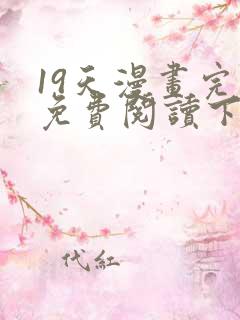 19天漫畫完
免費閱讀下
代紅